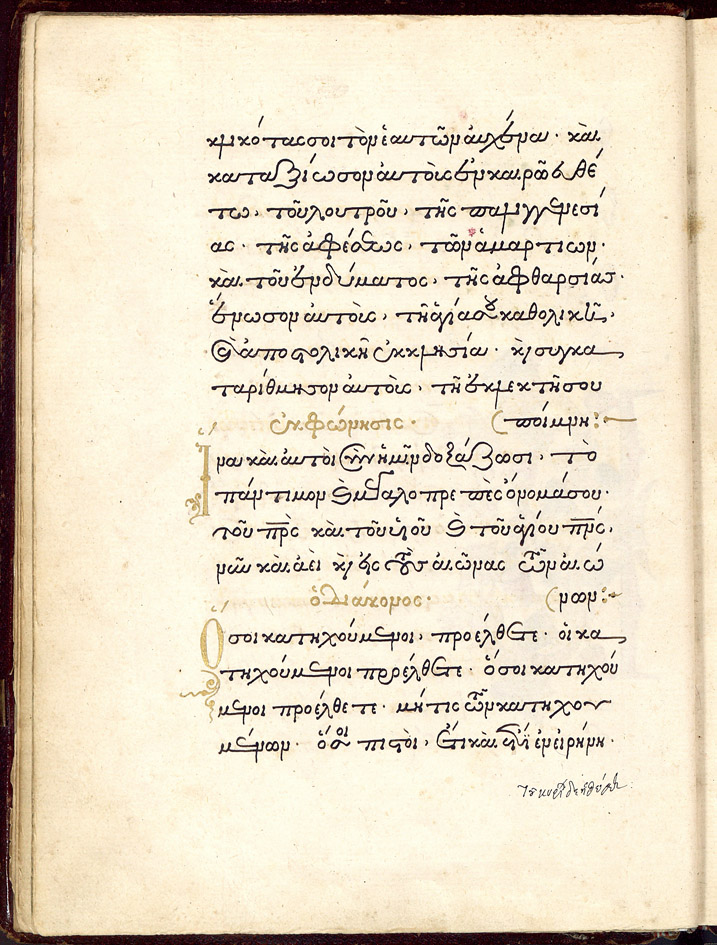 κλικότας σοι τὸν ἑαυτῶν αὐχένα· καὶ
καταξίωσον αὐτοὺς ἐν καιρῷ εὐθέ
τω, τοῦ λουτροῦ, τῆς παλιγγενεσί
ας· τῆς ἀφέσεως, τῶν ἁμαρτιῶν·
καὶ τοῦ ἐνδύματος, τῆς ἀφθαρσίας·
ἕνωσον αὐτοὺς, τῇ ἁγίᾳ σου καθολικῇ,
καὶ ἀποστολικῇ ἐκκλησίᾳ· κ συγκα
ταρίθμησον αὐτοὺς, τῇ ἐκλεκτῇ σου
ἐκφώνησις· (ποίμνῃ:
Ἵνα καὶ αὐτοὶ σὺν ἡμῖν δοξάζωσι, τὸ
πάντιμον καὶ μεγαλοπρεπὲς ὄνομά σου·
τοῦ πρς καὶ τοῦ υἱοῦ καὶ τοῦ ἁγίου πνς,
νῦν καὶ ἀεὶ κ εἰς τοὺς αἰῶνας τῶν αἰώ
ὁ διάκονος· (νων:
Ὅσοι κατηχούμενοι, προέλθετε· οἱ κα
τηχούμενοι προέλθετε· ὅσοι κατηχού
μενοι προέλθετε· μή τις τῶν κατηχου
μένων· ὅσοι πιστοὶ, ἔτι καὶ ἔτι ἐν εἰρήνῃ·